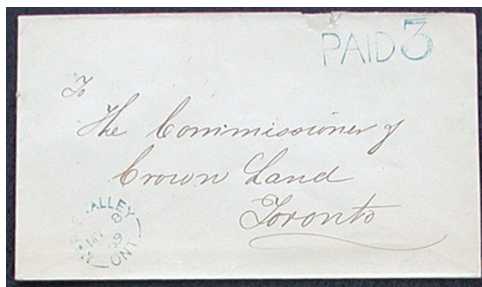 PAID 3
To
The Commissioner of
Crown Land
Toronto
VALLEY
8
69
ONT